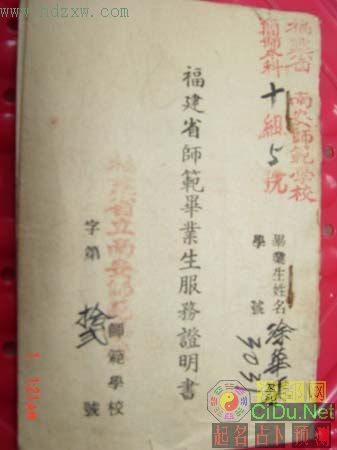 www.hdzxw.hk
福建省 南安師範學校
十組5號
畢業生姓名 徐華
學號
福建省師範畢業生服務證明書
省立南安師範
師範學校
字第 號
CiDu.Net
起名占卜预测